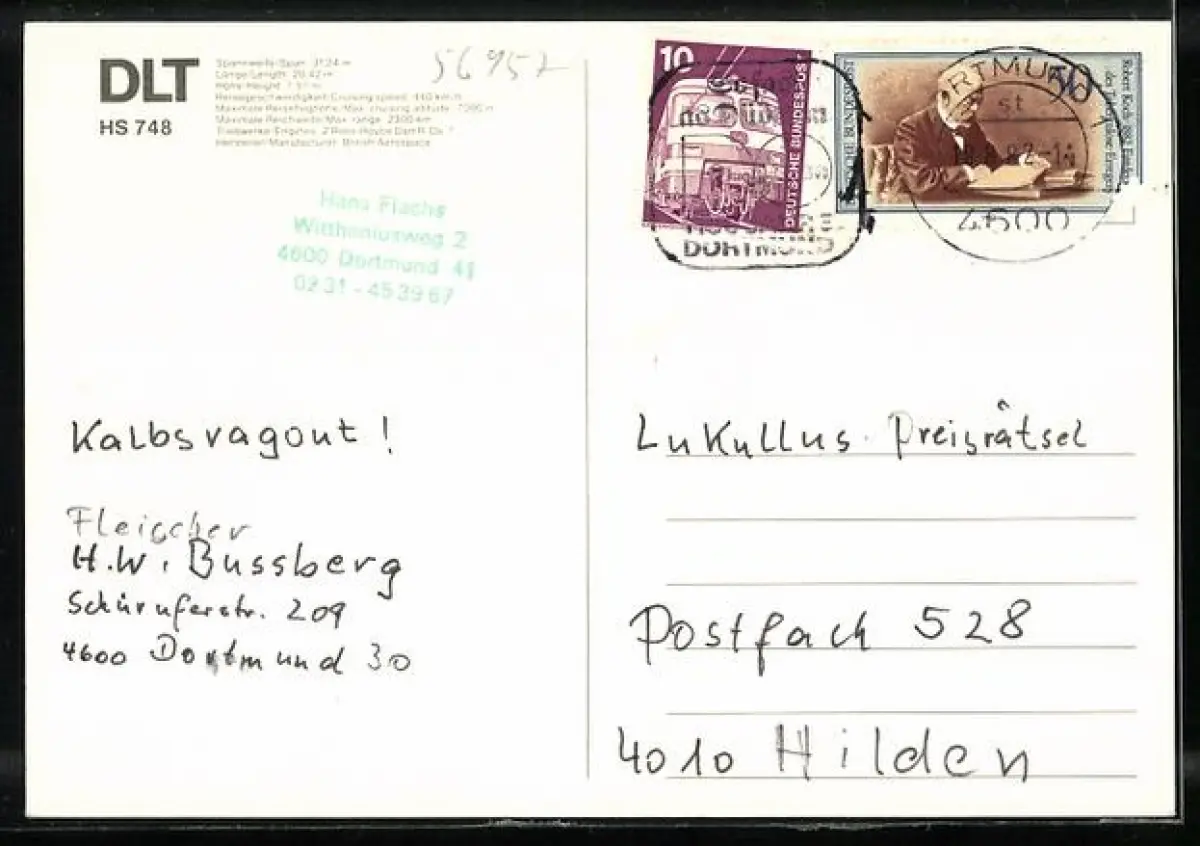 DLT
HS 748
Spannweite/Span: 31.24 m
Länge/Length: 20.42 m
Reisegeschwindigkeit/Cruising speed: 440 km/h
Maximale Reiseflughöhe/Max. cruising altitude:
Maximale Reichweite/Max. range: 2300 km
Triebwerke/Engines: 2 Rolls-Royce Dart
Hersteller/Manufacturer: British Aerospace
56957
10
DEUTSCHE BUNDESPOST
DORTMUND
50
Robert Koch 1882 Entdecker
DORTMUND
st
4600
Hans Flachs
2
4600 Dortmund 41
0231-453967
Kalbsragout!
Fleischer
H.W. Bussberg
Schüruferstr. 209
4600 Dortmund 30
Lukullus Preisrätsel
Postfach 528
4010 Hilden